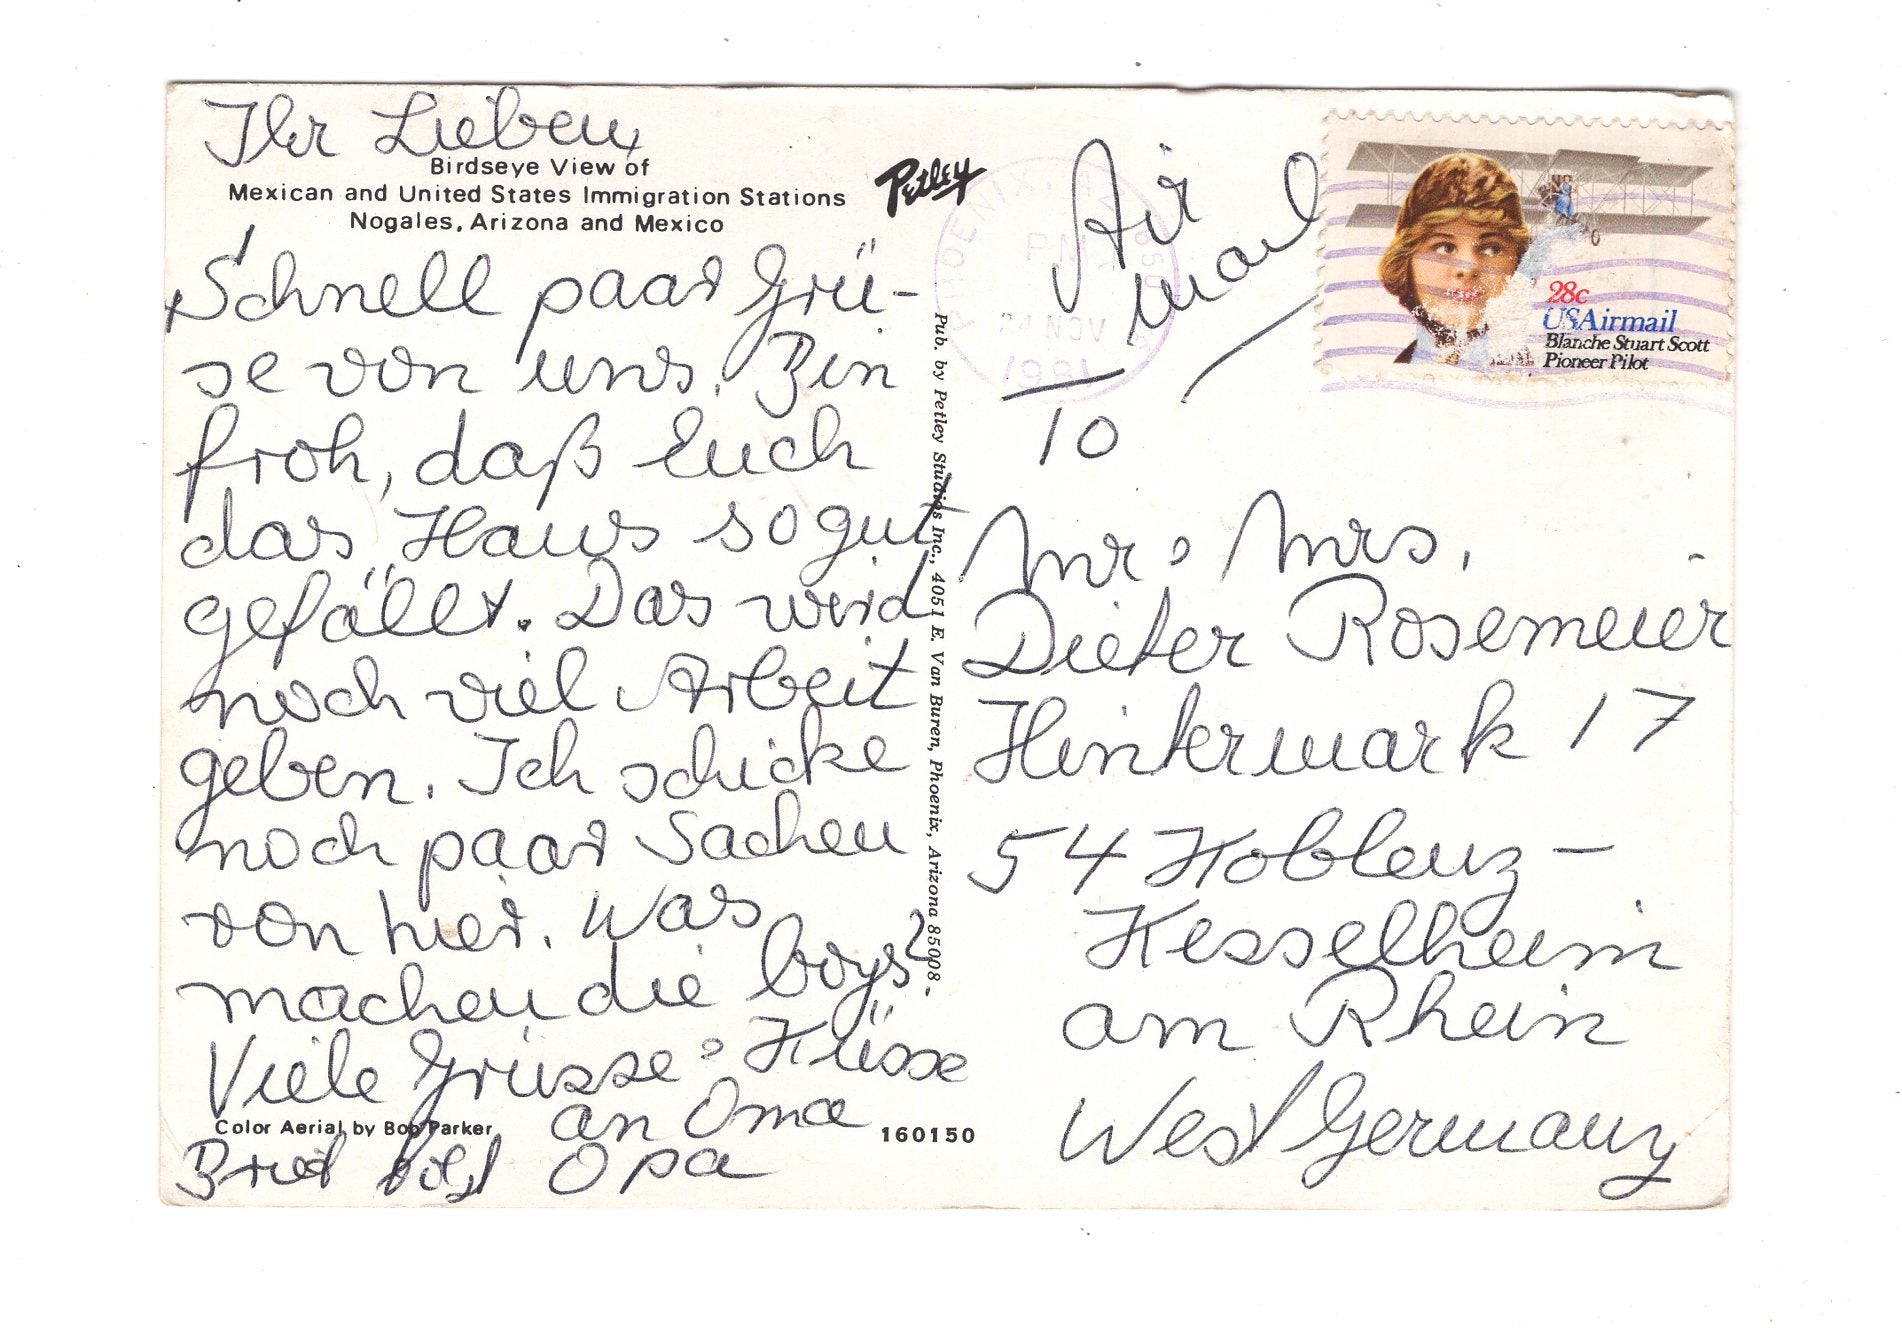 Ihr Lieben,
Birdseye View of
Mexican and United States Immigration Stations
Nogales, Arizona and Mexico
Petley
Schnell paar Grü-
se von uns. Bin
froh, daß Euch
das Haus so gut
gefällt. Das wird
noch viel Arbeit
geben. Ich schicke
noch paar Sachen
von hier. Was
machen die boys?
Viele Grüsse & Küsse
an Oma
Color Aerial by Bob Parker
160150
Brief folgt Opa
Pub. by Petley Studios Inc., 4051 E. Van Buren, Phoenix, Arizona 85008.
PHOENIX, A
850
PM
NOV
1981
Air
mail
28c
USAirmail
Blanche Stuart Scott
Pioneer Pilot
To
Mr & Mrs.
Dieter Rosemeier
Hintermark 17
54 Koblenz-
Kesselheim
am Rhein
West Germany